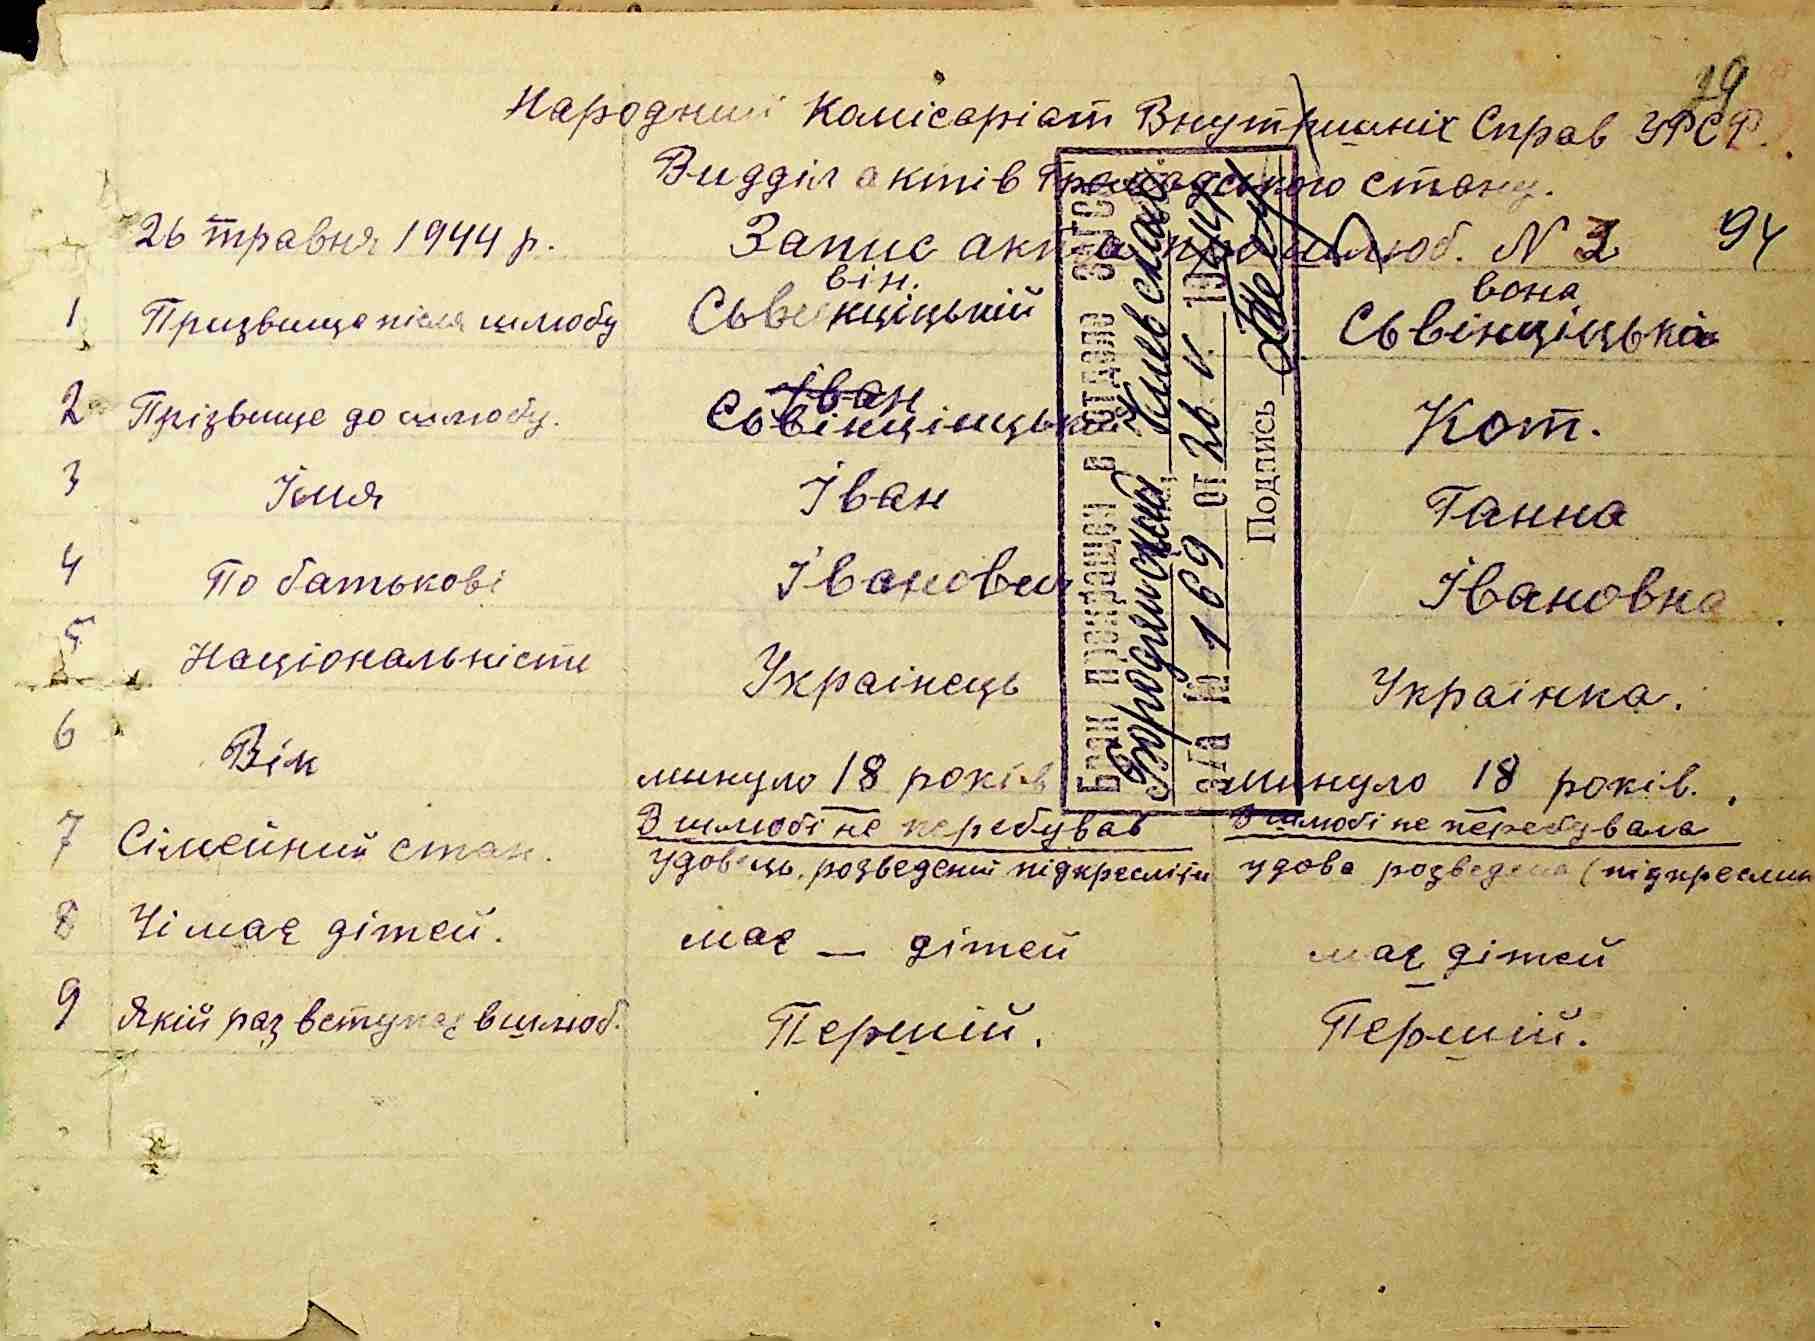 19
Народний Комісаріат Внутришніх Справ УРСР.
Видділ актів Громадського стану.
26 травня 1944 р. Запис акта про шлюб. N 2 94
він. вона
1 Призвище після шлюбу Сьвінкціцький Сьвінціцька
2 Прізвище до шлюбу. Іван Сьвінціцький Кот.
3 Імя Іван Ганна
4 По батькові Іванович Івановна
5 Національність Украінець Украінка.
6 Вік минуло 18 років минуло 18 років.
7 Сімейний стан. В шлюбі не перебував В шлюбі не перебувала
удовець. розведений підкреслити удова розведена (підкреслит
8 Чі має дітей. має — дітей має — дітей
9 Якій раз вступає в шлюб. Першій. Першій.
Брак прекращен в отделе ЗАГСа
Бородянский Киевской
а/а № 169 от 26 V 19
Подпись